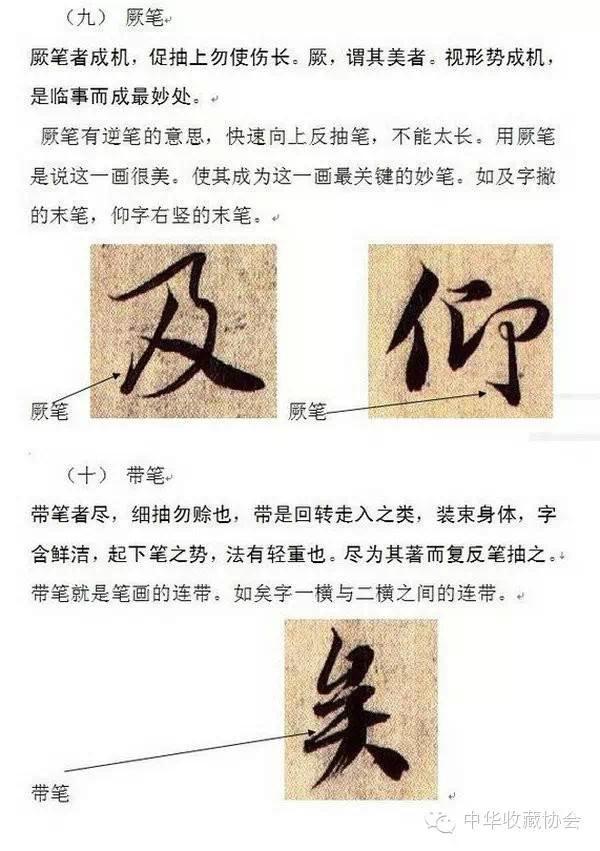 （九） 厥笔
厥笔者成机，促抽上勿使伤长。厥，谓其美者。视形势成机，
是临事而成最妙处。
厥笔有逆笔的意思，快速向上反抽笔，不能太长。用厥笔
是说这一画很美。使其成为这一画最关键的妙笔。如及字撇
的末笔，仰字右竖的末笔。
及 仰
厥笔 厥笔
（十） 带笔
带笔者尽，细抽勿赊也，带是回转走入之类，装束身体，字
含鲜洁，起下笔之势，法有轻重也。尽为其著而复反笔抽之。
带笔就是笔画的连带。如矣字一横与二横之间的连带。
矣
带笔
中华收藏协会